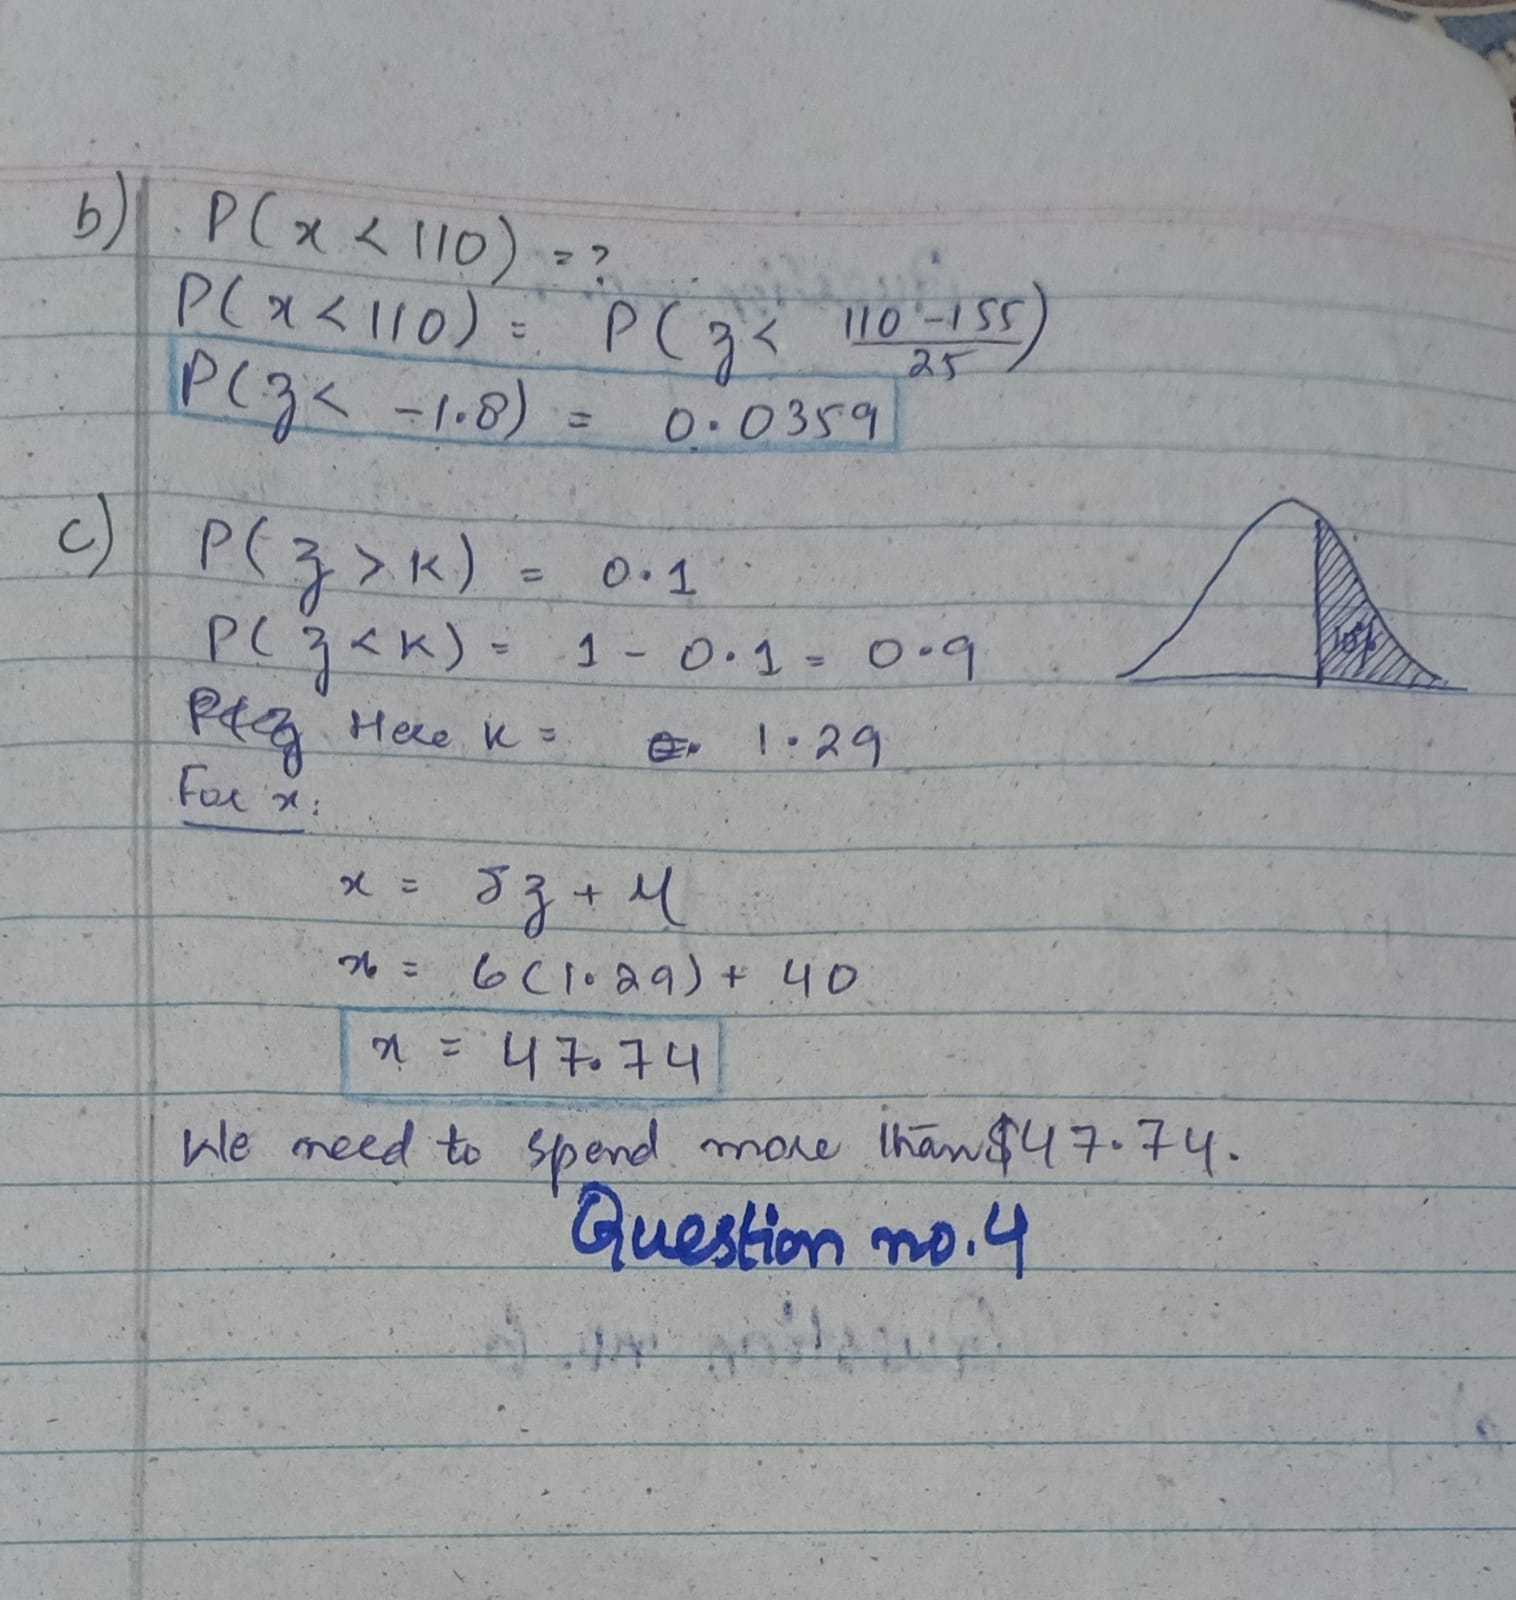 b) P(x < 110) = ?
P(x < 110) = P(z < 110 - 155 / 25)
P(z < -1.8) = 0.0359
c) P(z > K) = 0.1
P(z < K) = 1 - 0.1 = 0.9
Here K = 1.29
10%
For x:
x = δz + μ
x = 6(1.29) + 40
x = 47.74
We need to spend more than $47.74.
Question no.4